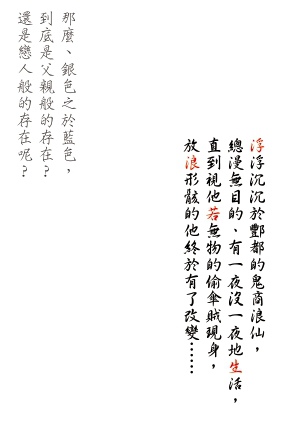 浮浮沉沉於酆都的鬼商浪仙，
總漫無目的、有一夜沒一夜地生活，
直到視他若無物的偷傘賊現身，
放浪形骸的他終於有了改變……
那麼、銀色之於藍色，
到底是父親般的存在？
還是戀人般的存在呢？